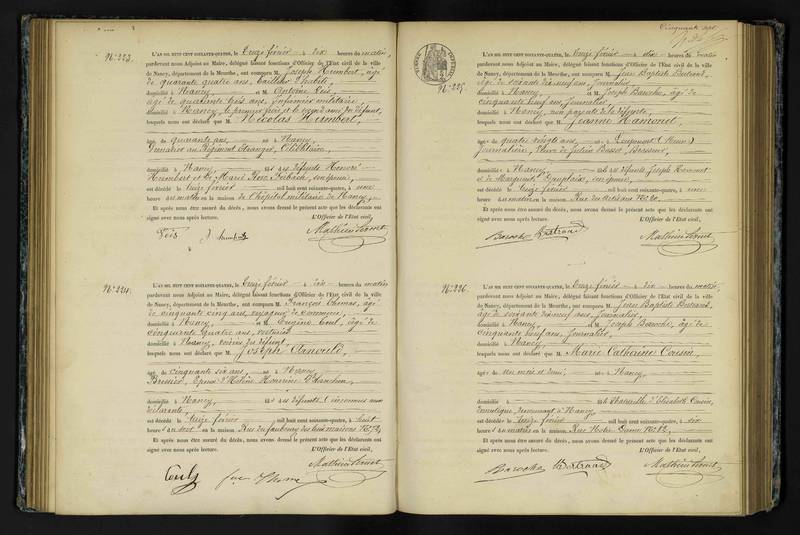 N° 223.
L'AN MIL HUIT CENT SOIXANTE-QUATRE, le treize février à dix heures du matin,
pardevant nous Adjoint au Maire, délégué faisant fonctions d'Officier de l'Etat civil de la ville
de Nancy, département de la Meurthe, ont comparu M. Joseph Humbert, âgé
de quarante quatre ans, tailleur d'habits,
domicilié à Nancy, et M. Antoine
âgé de quarante trois ans, Infirmier militaire,
domicilié à Nancy, le premier frère et le second ami du défunt,
lesquels nous ont déclaré que M. Nicolas Humbert,
âgé de quarante ans, né à Nancy,
au Régiment étranger, Célibataire,
domicilié à Nancy, fils des défunts Honoré
Humbert et de Marie Rose son épouse,
est décédé le treize février mil huit cent soixante-quatre, à une
heure du matin en la maison de l'hôpital militaire de Nancy,
Et après nous être assuré du décès, nous avons dressé le présent acte que les déclarants ont
signé avec nous après lecture. L'Officier de l'Etat civil,
J. Humbert
N° 224.
L'AN MIL HUIT CENT SOIXANTE-QUATRE, le treize février à dix heures du matin
pardevant nous Adjoint au Maire, délégué faisant fonctions d'Officier de l'Etat civil de la ville
de Nancy, département de la Meurthe, ont comparu M. François Thomas, âgé
de cinquante cinq ans, voyageur de commerce,
domicilié à Nancy, et M. Eugène âgé de
cinquante quatre ans,
domicilié à Nancy, voisins du défunt,
lesquels nous ont déclaré que M. Joseph
âgé de cinquante six ans, né à Nancy,
Epoux d'Hélène
domicilié à Nancy, fils des défunts (inconnus aux
déclarants
est décédé le treize février mil huit cent soixante-quatre, à huit
heures du en la maison Rue du faubourg des trois maisons N°
Et après nous être assuré du décès, nous avons dressé le présent acte que les déclarants ont
signé avec nous après lecture. L'Officier de l'Etat civil,
Cinquante sept
N° 225.
L'AN MIL HUIT CENT SOIXANTE-QUATRE, le treize février à dix heures du matin
pardevant nous Adjoint au Maire, délégué faisant fonctions d'Officier de l'Etat civil de la ville
de Nancy, département de la Meurthe, ont comparu M. Jean Baptiste Bertrand,
âgé de soixante dix-neuf ans, Journalier,
domicilié à Nancy, et M. Joseph Baroche, âgé de
cinquante neuf ans, Journalier,
domicilié à Nancy, non parents de la défunte,
lesquels nous ont déclaré que M. Jeanne Hamonet,
âgée de quatre vingts ans, née à (Meuse)
Journalière, Veuve de Julien
domiciliée à Nancy, fille des défunts Joseph
et de Marguerite son épouse,
est décédée le treize février mil huit cent soixante-quatre, à une
heure du matin en la maison Rue des Artisans N° 20.
Et après nous être assuré du décès, nous avons dressé le présent acte que les déclarants ont
signé avec nous après lecture. L'Officier de l'Etat civil,
Baroche Bertrand
N° 226.
L'AN MIL HUIT CENT SOIXANTE-QUATRE, le treize février à dix heures du matin,
pardevant nous Adjoint au Maire, délégué faisant fonctions d'Officier de l'Etat civil de la ville
de Nancy, département de la Meurthe, ont comparu M. Jean Baptiste Bertrand,
âgé de soixante dix-neuf ans, Journalier,
domicilié à Nancy, et M. Joseph Baroche, âgé de
cinquante neuf ans, Journalier,
domicilié à Nancy,
lesquels nous ont déclaré que M. Marie Catherine Cousin,
âgée de un mois et demi, née à Nancy,
domicilié à fille naturelle d'Elisabeth Cousin,
demeurant à Nancy
est décédée le treize février mil huit cent soixante-quatre, à six
heures du matin en la maison Rue Notre Dame N°
Et après nous être assuré du décès, nous avons dressé le présent acte que les déclarants ont
signé avec nous après lecture. L'Officier de l'Etat civil,
Baroche Bertrand